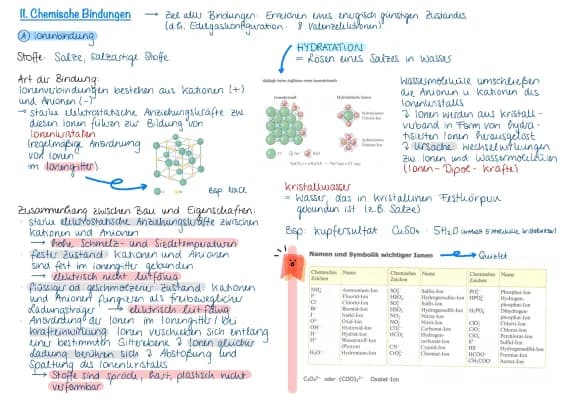 II. Chemische Bindungen → Ziel aller Bindungen: Erreichen eines energisch günstigen Zustandes
(d.h. Edelgaskonfiguration - 8 Valenzelektronen)
A Ionenbindung
Stoffe: Salze, salzartige Stoffe
Art der Bindung:
Ionenverbindungen bestehen aus Kationen (+)
und Anionen (-)
→ starke elektrostatische Anziehungskräfte zw
diesen Ionen führen zur Bildung von
Ionenkristallen
(regelmäßige Anordnung
von Ionen
im Ionengitter)
Bsp NaCl
HYDRATATION
= Lösen eines Salzes in Wasser
Wassermoleküle umschließen
die Anionen u Kationen des
Ionenkristalls
Ionen werden aus Kristall-
verband in Form von hydra-
tisierten Ionen herausgelöst
Ursache: Wechselwirkungen
zw Ionen und Wassermolekülen
(Ionen-Dipol-Kräfte)
Kristallwasser
= Wasser, das in kristallinen Festkörpern
gebunden ist (z.B. Salze)
Bsp: Kupfersulfat CuSO₄ · 5H₂O
Zusammenhang zwischen Bau und Eigenschaften:
· starke elektrostatische Anziehungskräfte zwischen
Kationen und Anionen
→ hohe Schmelz- und Siedetemperaturen
· fester Zustand: Kationen und Anionen
sind fest im Ionengitter gebunden
→ elektrisch nicht leitfähig
· flüssiger od geschmolzener Zustand: Kationen
und Anionen fungieren als freibewegliche
Ladungsträger → elektrisch leitfähig
· Anordnung der Ionen im Ionengitter: bei
Krafteinwirkung Ionen verschieben sich entlang
einer bestimmten Gitterebene Ionen gleicher
Ladung berühren sich Abstoßung und
Spaltung des Ionenkristalls
→ Stoffe sind spröde, hart, plastisch nicht
verformbar
Namen und Symbolik wichtiger Ionen → Quizlet
Chemisches Zeichen Name Chemisches Zeichen Name Chemisches Zeichen Name
NH₄⁺ Ammonium-Ion
F⁻ Fluorid-Ion
Cl⁻ Chlorid-Ion
Br⁻ Bromid-Ion
I⁻ Iodid-Ion
O²⁻ Oxid-Ion
OH⁻ Hydroxid-Ion
H⁻ Hydrid-Ion
H⁺ Wasserstoff-Ion
(Proton)
H₃O⁺ Hydronium-Ion
Sulfat-Ion
Hydrogensulfat-Ion
Sulfit-Ion
Hydrogensulfit-Ion
Nitrat-Ion
Nitrit-Ion
Carbonat-Ion
Hydrogen-
carbonat-Ion
CN⁻ Cyanid-Ion
Chromat-Ion
PO₄³⁻ Phosphat-Ion
HPO₄²⁻ Hydrogen-
phosphat-Ion
H₂PO₄⁻ Dihydrogen-
phosphat-Ion
Chlorat-Ion
Perchlorat-Ion
S²⁻ Sulfid-Ion
HS⁻ Hydrogensulfid-Ion
HCOO⁻ Formiat-Ion
CH₃COO⁻ Acetat-Ion
C₂O₄²⁻ oder (COO)₂²⁻ Oxalat-Ion